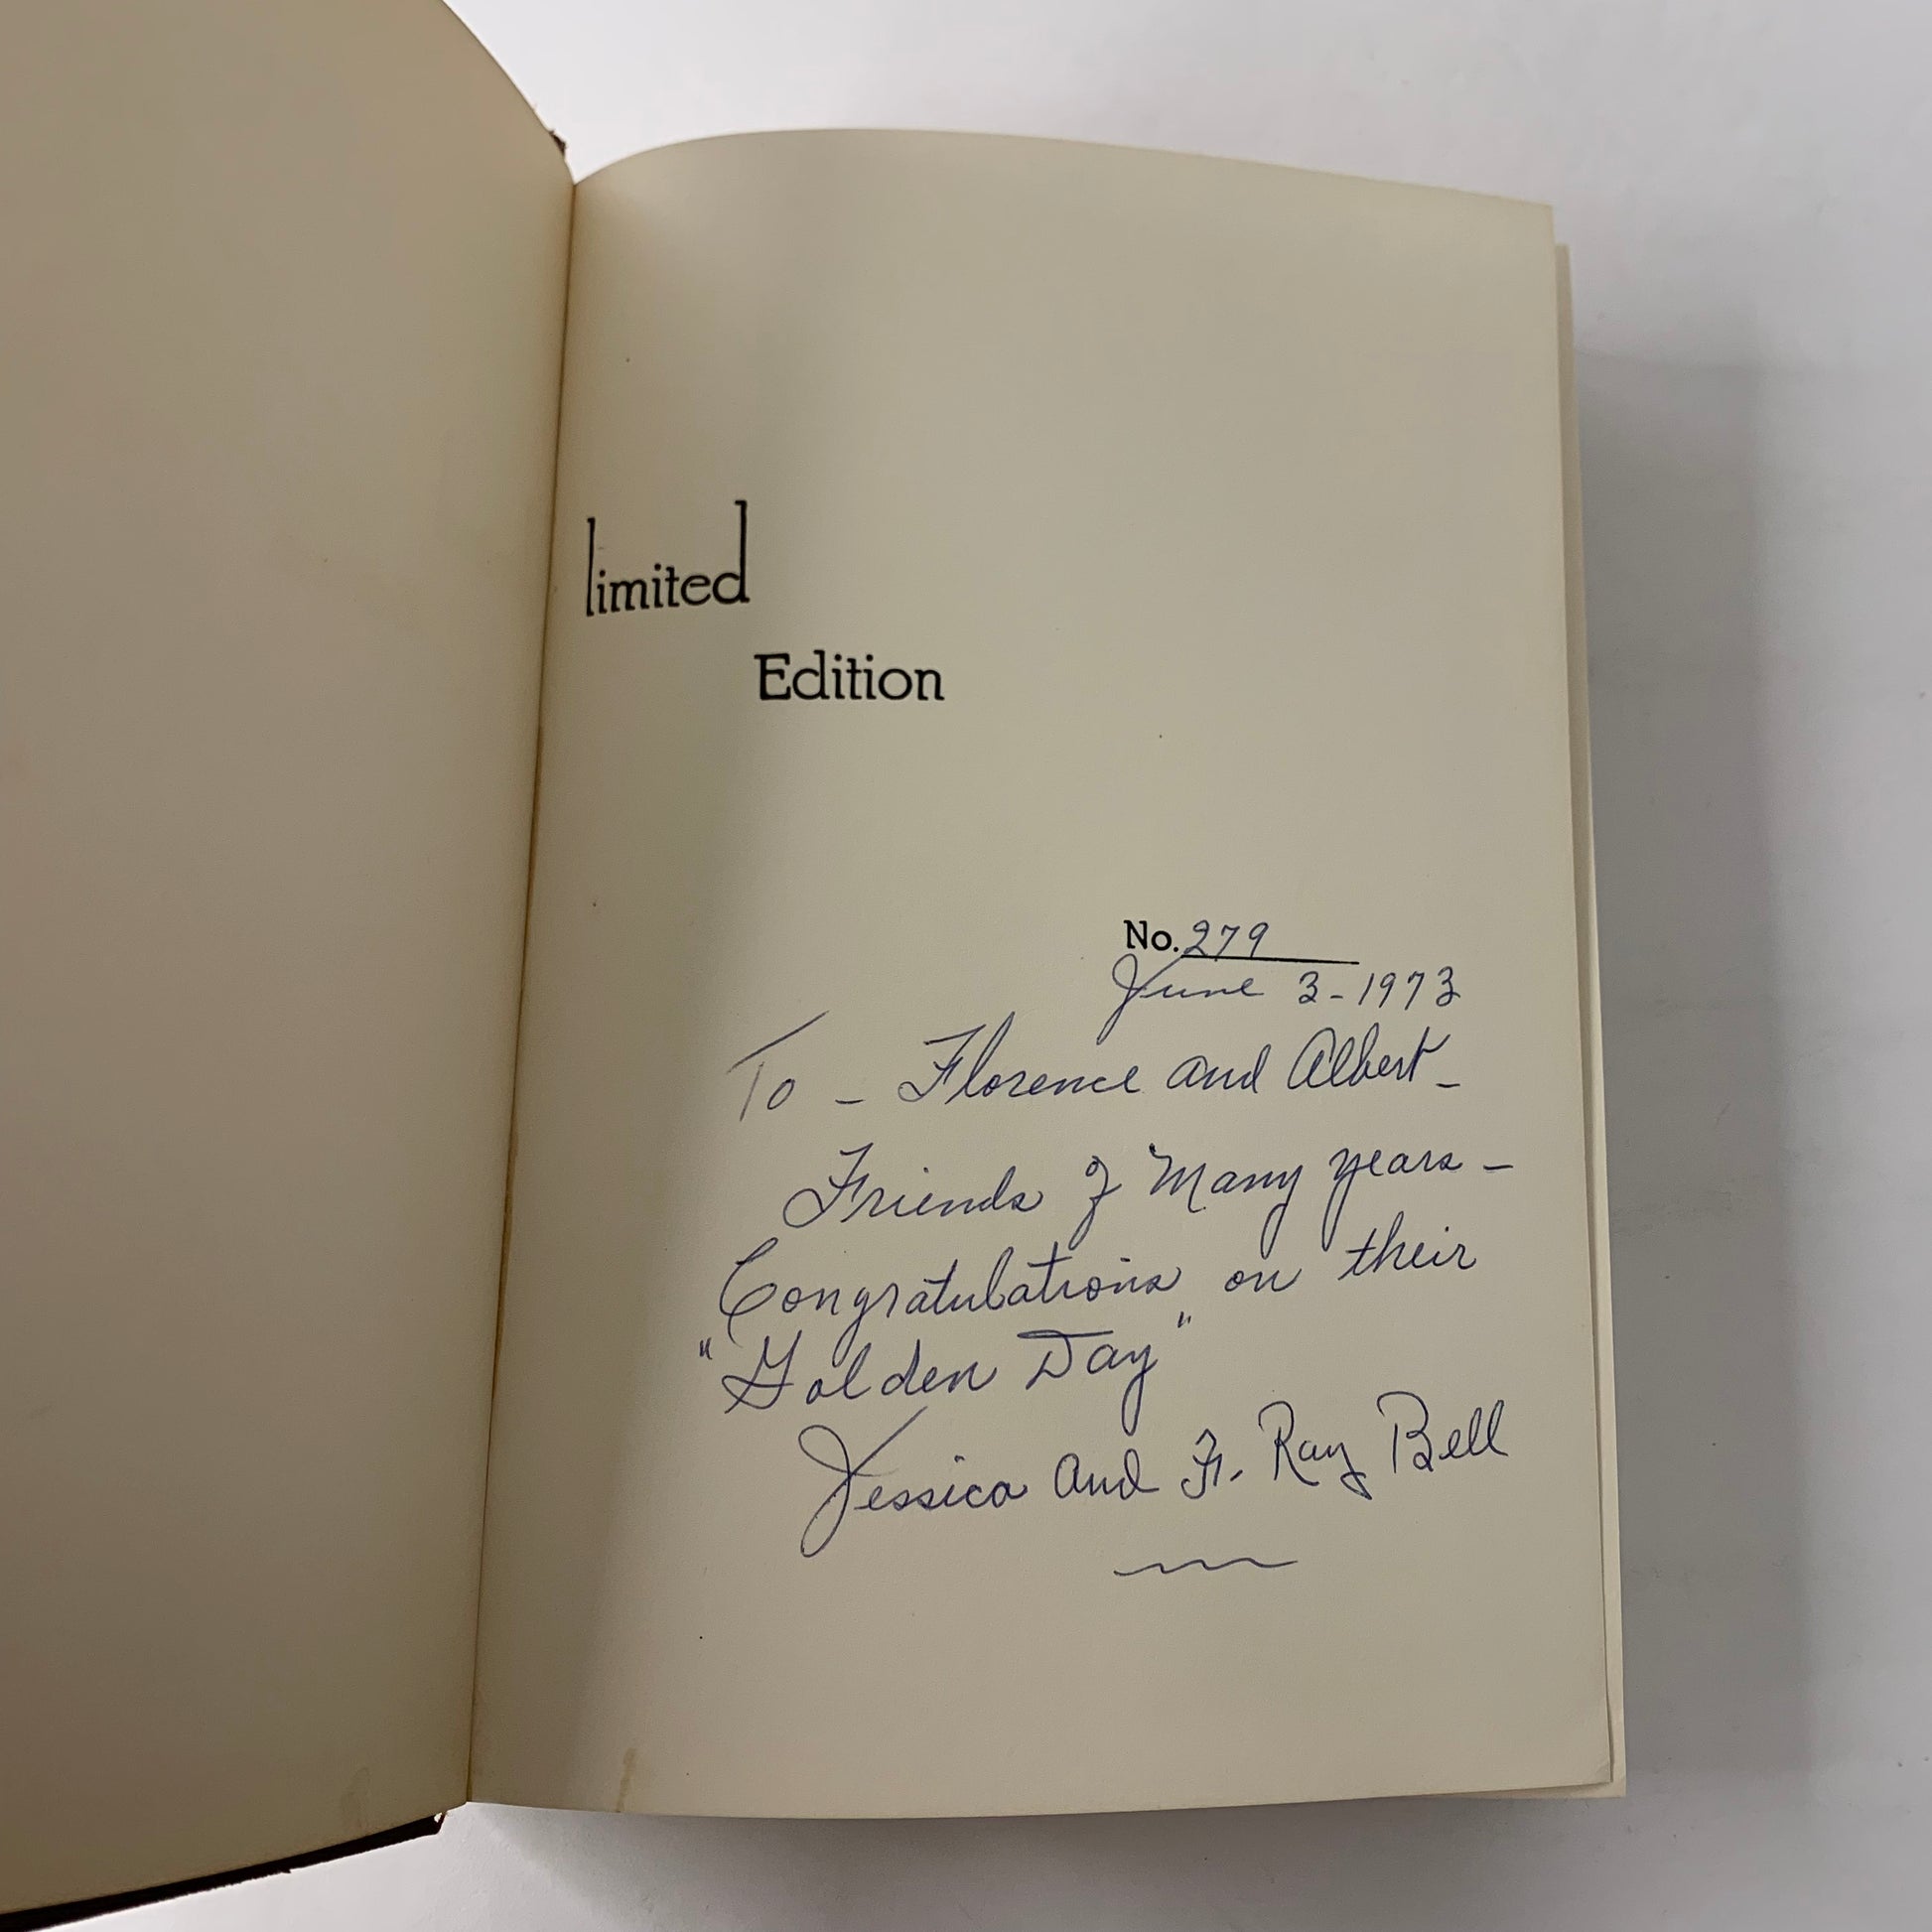 limited
Edition
No. 279
June 3-1973
To - Florence and Albert -
Friends of Many years -
Congratulations on their
"Golden Day"
Jessica and Fr. Ray Bell